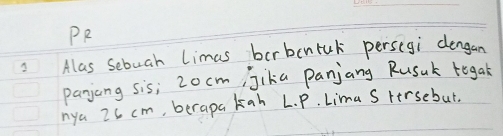 PR
Alas Sebuah Limas berbentuk persegi dengan
panjang sisi 20 cm, jika panjang Rusuk tegak
nya 26 cm, berapa kah L.P. Lima S tersebut.